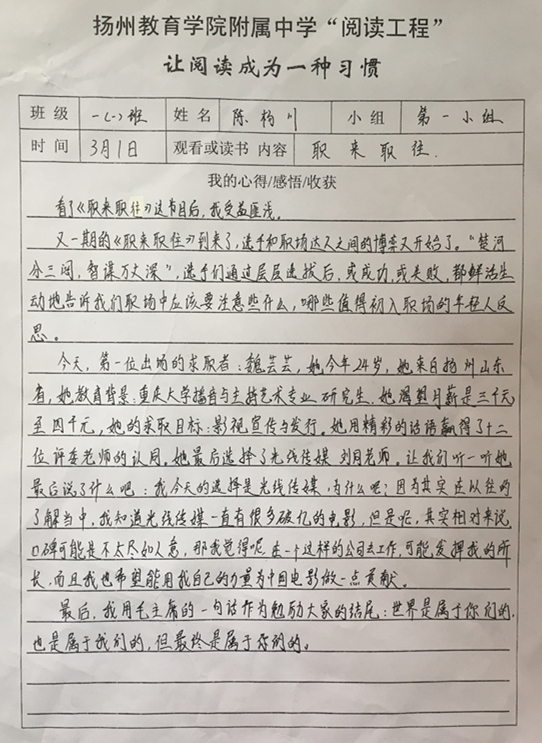 扬州教育学院附属中学“阅读工程”
让阅读成为一种习惯
班级 一(一)班 姓名 陈杨川 小组 第一小组
时间 3月1日 观看或读书 内容 职来职往.
我的心得/感悟/收获
看了《职来职往》这节目后,我受益匪浅。
又一期的《职来职往》到来了,选手和职场达人之间的博弈又开始了。“楚河
分三阔,智谋万丈深”,选手们通过层层选拔后,或成功,或失败,都鲜活生
动地告诉我们职场中应该要注意些什么,哪些值得初入职场的年轻人反
思。
今天,第一位出场的求职者:魏芸芸,她今年24岁,她来自扬州山东
省,她教育背景:重庆大学播音与主持艺术专业 研究生.她渴望月薪是三千元
至四千元,她的求取目标:影视宣传与发行。她用精彩的话语赢得了十二
位评委老师的认同。她最后选择了光线传媒 刘同老师。让我们听一听她
最后说了什么吧:我今天的选择是光线传媒,为什么呢?因为其实在以往的
了解当中,我知道光线传媒一直有很多破亿的电影,但是呢,其实相对来说,
口碑可能是不太尽如人意,那我觉得呢,在一个这样的公司去工作,可能,发挥我的所
长,而且我也希望能用我自己的力量为中国电影做一点贡献。
最后,我用毛主席的一句话作为勉励大家的结尾:世界是属于你们的,
也是属于我们的,但最终是属于你们的。